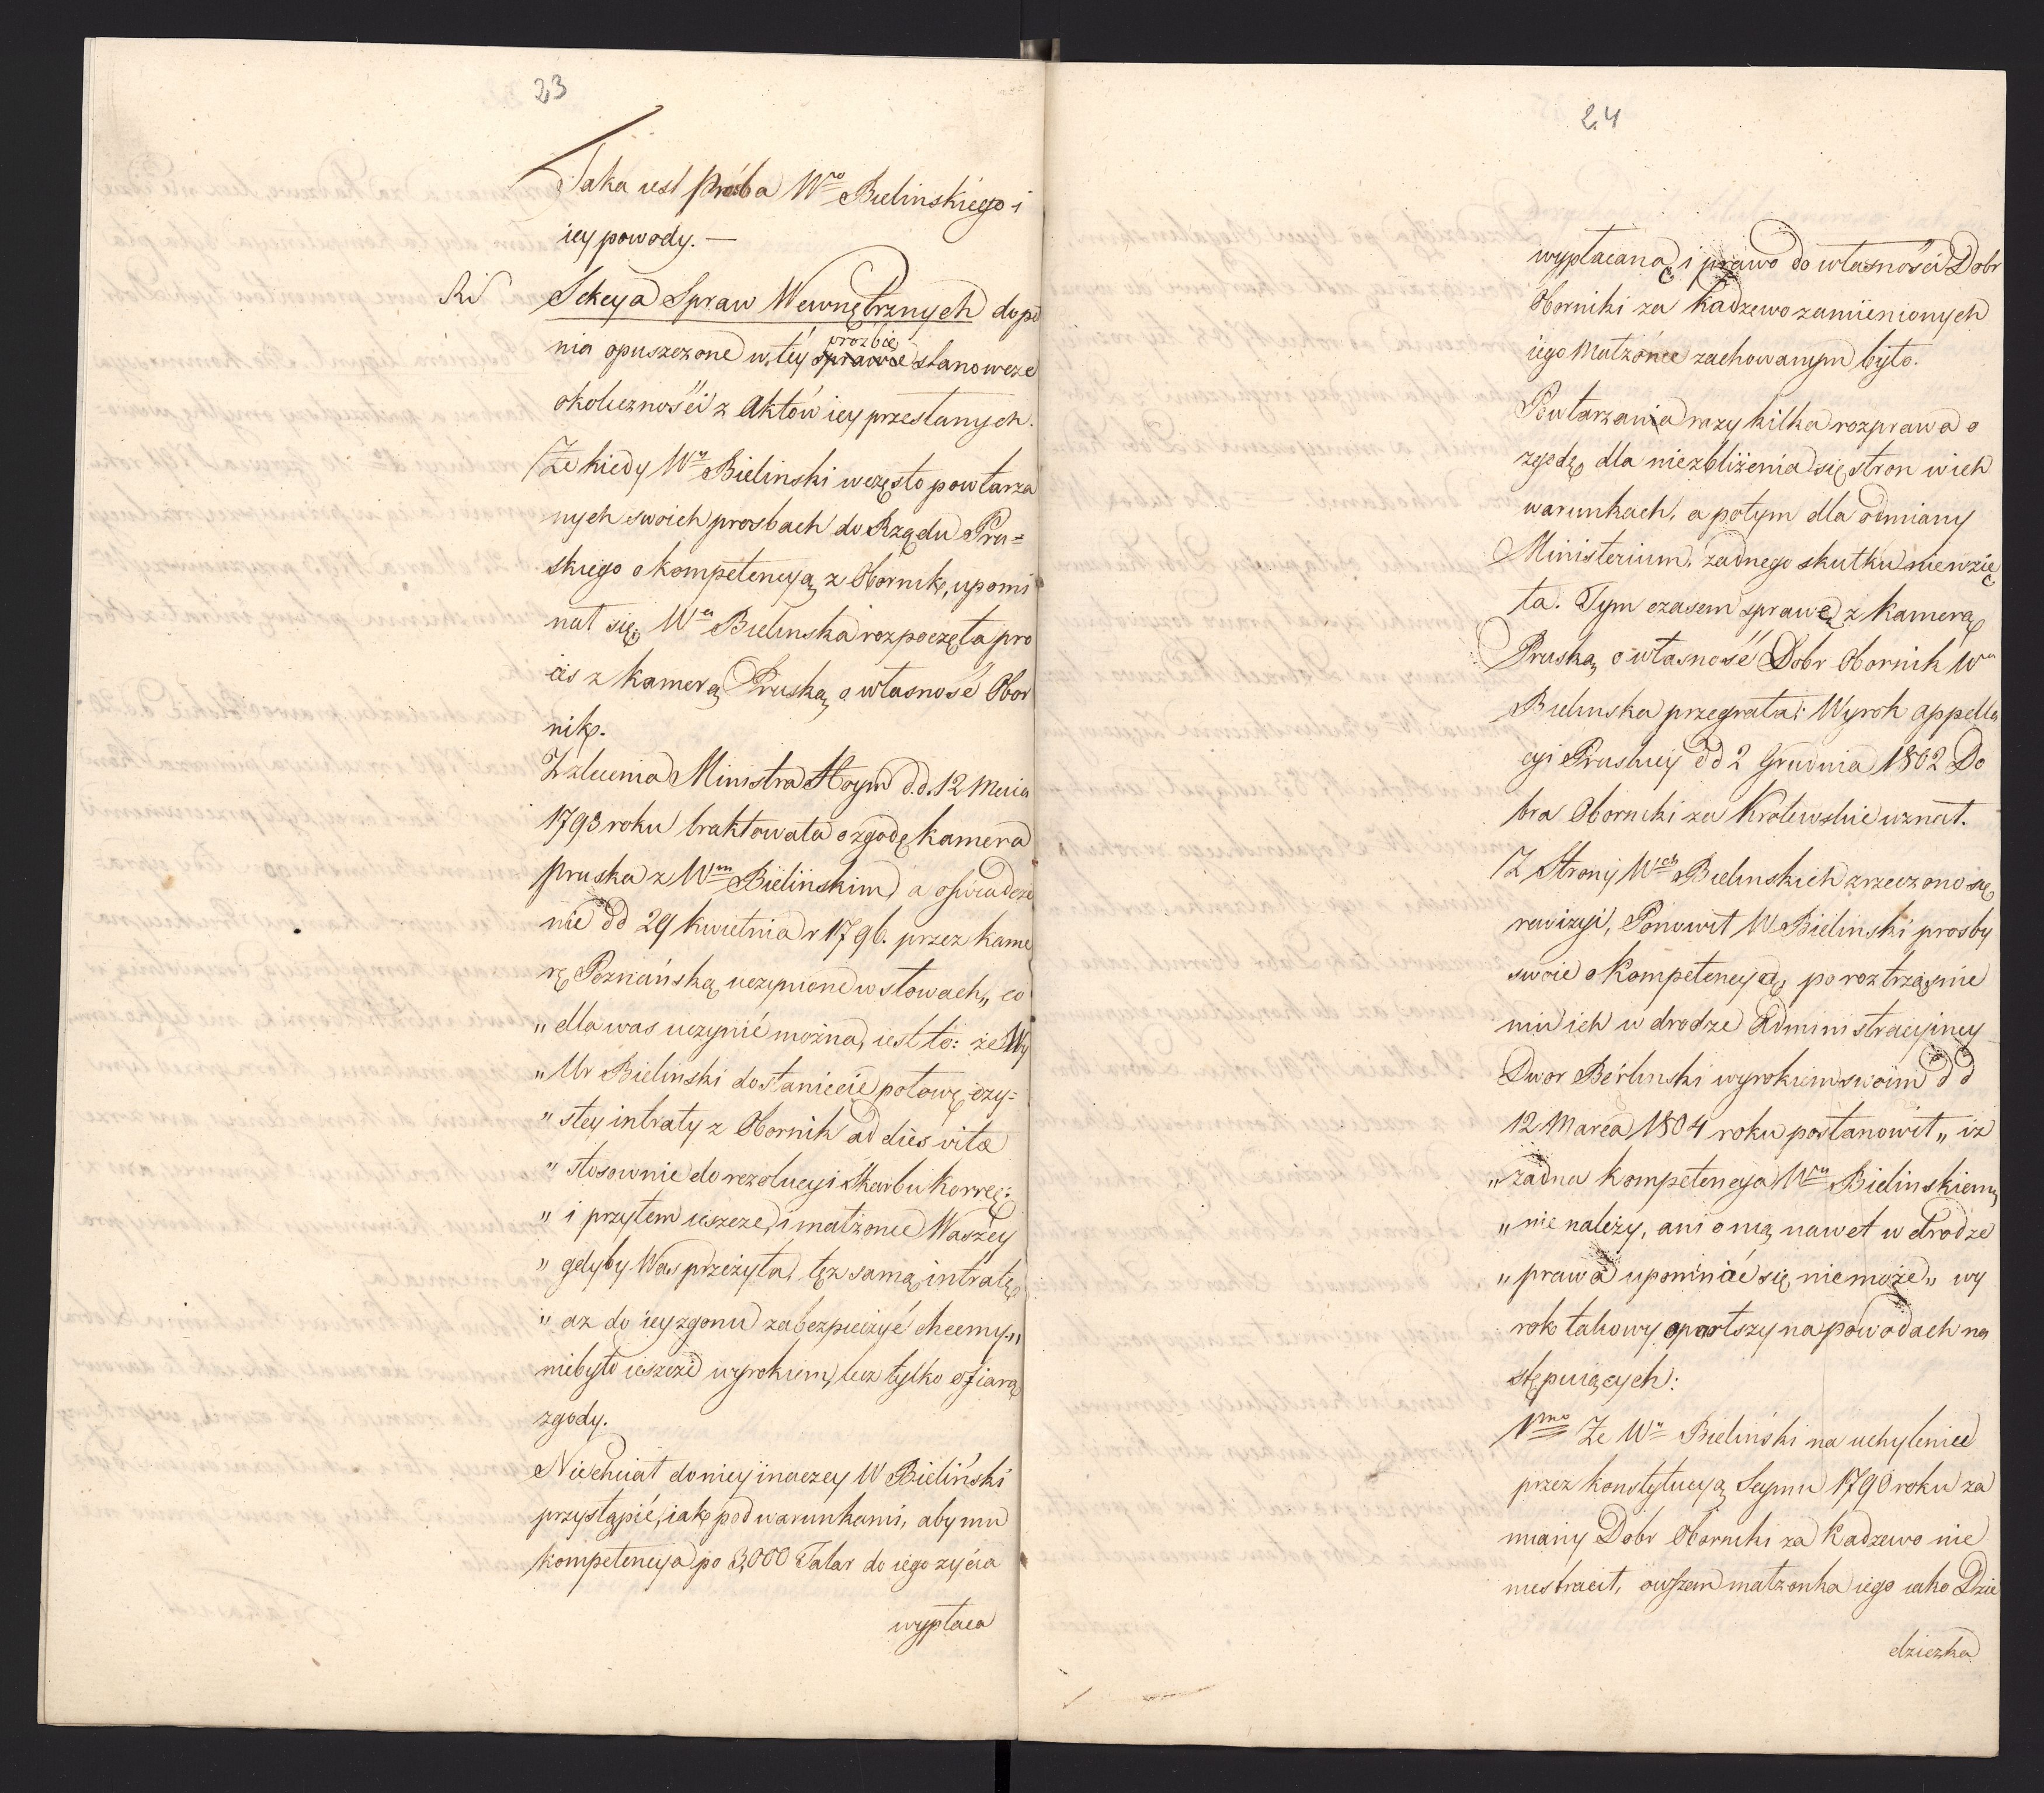 23
Taka iest Prośba Wgo Bielinskiego i
iey powody. —
Sekcya Spraw Wewnętrznych dopeł
nia opuszczone w tey prozbie stanowcze
okoliczności z Aktów iey przesłanych.
Że kiedy Wny Bielinski w często powtarza
nych swoich prosbach do Rządu Pru=
skiego o kompetencyą z Obornik, upomi
nał się, Wna Bielinska rozpoczęła pro
ces z kamerą Pruską o własność Obor
nik.
Z zlecenia Ministra Hoym d.d. 12 Maia
1793 roku traktowała o zgodę kamera
pruska z Wnm Bielinskim, a oświadcze
nie dd 29 kwietnia r 1796. przez kame
rę Poznańską uczynione w słowach „ co
„ dla was uczynić można, iest to: że Wy
„ Ur Bielinski dostaniecie połowę czy=
„ stey intraty z Obornik ad dies vitæ
„ stosownie do rezolucyi Skarbu Korreg:
„ i przytem ieszcze, i małżonce Waszéy
„ gdyby Was przeżyła, tęż samą intratę
„ aż do iey zgonu zabezpieczyć chcemy „
niebyło ieszcze wyrokiem, lecz tylko ofiarą
zgody.
Niechciał do niey inaczey W Bieliński
przystąpić, iak pod warunkami, aby mu
kompetencyja po 3,000 Talar do iego życia
wypłaca
24
wypłacaną i prawo do własności Dobr
Oborniki za Kadzewo zamienionych
iego Małżonce zachowanym było.
Powtarzana razy kilka rozprawa o
zgodę, dla niezbliżenia się stron w ich
warunkach, a potym dla odmiany
Ministerium, żadnego skutku niewzię
ła. Tym czasem sprawę z Kamerą
Pruską o własność Dobr Obornik Wa
Bielinska przegrała: Wyrok appella
cyi Pruskiey dd 2 Grudnia 1802 Do
bra Oborniki za Krolewskie uznał.
Z Strony Wch Bielinskich zrzeczono się
rewizyi, Ponowił W Bielinski prosby
swoie o Kompetencyą, po roztrząśnie
niu ich w drodze Administracyiney
Dwor Berlinski wyrokiem swoim dd
12 Marca 1804 roku postanowił „ iż
„ żadna kompetencyja Wmu Bielinskiemu
„ nie należy, ani o nią nawet w drodze
„ prawa upominać się niemoże „ wy
rok takowy oparłszy na powodach na
stępuiących:
1mo Że Wy Bieliński na uchyleniu
przez konstytucyą Seymu 1790 roku za
miany Dobr Oborniki za Kadzewo nic
niestracił, owszem małżonka iego iako Dzie
dziczka